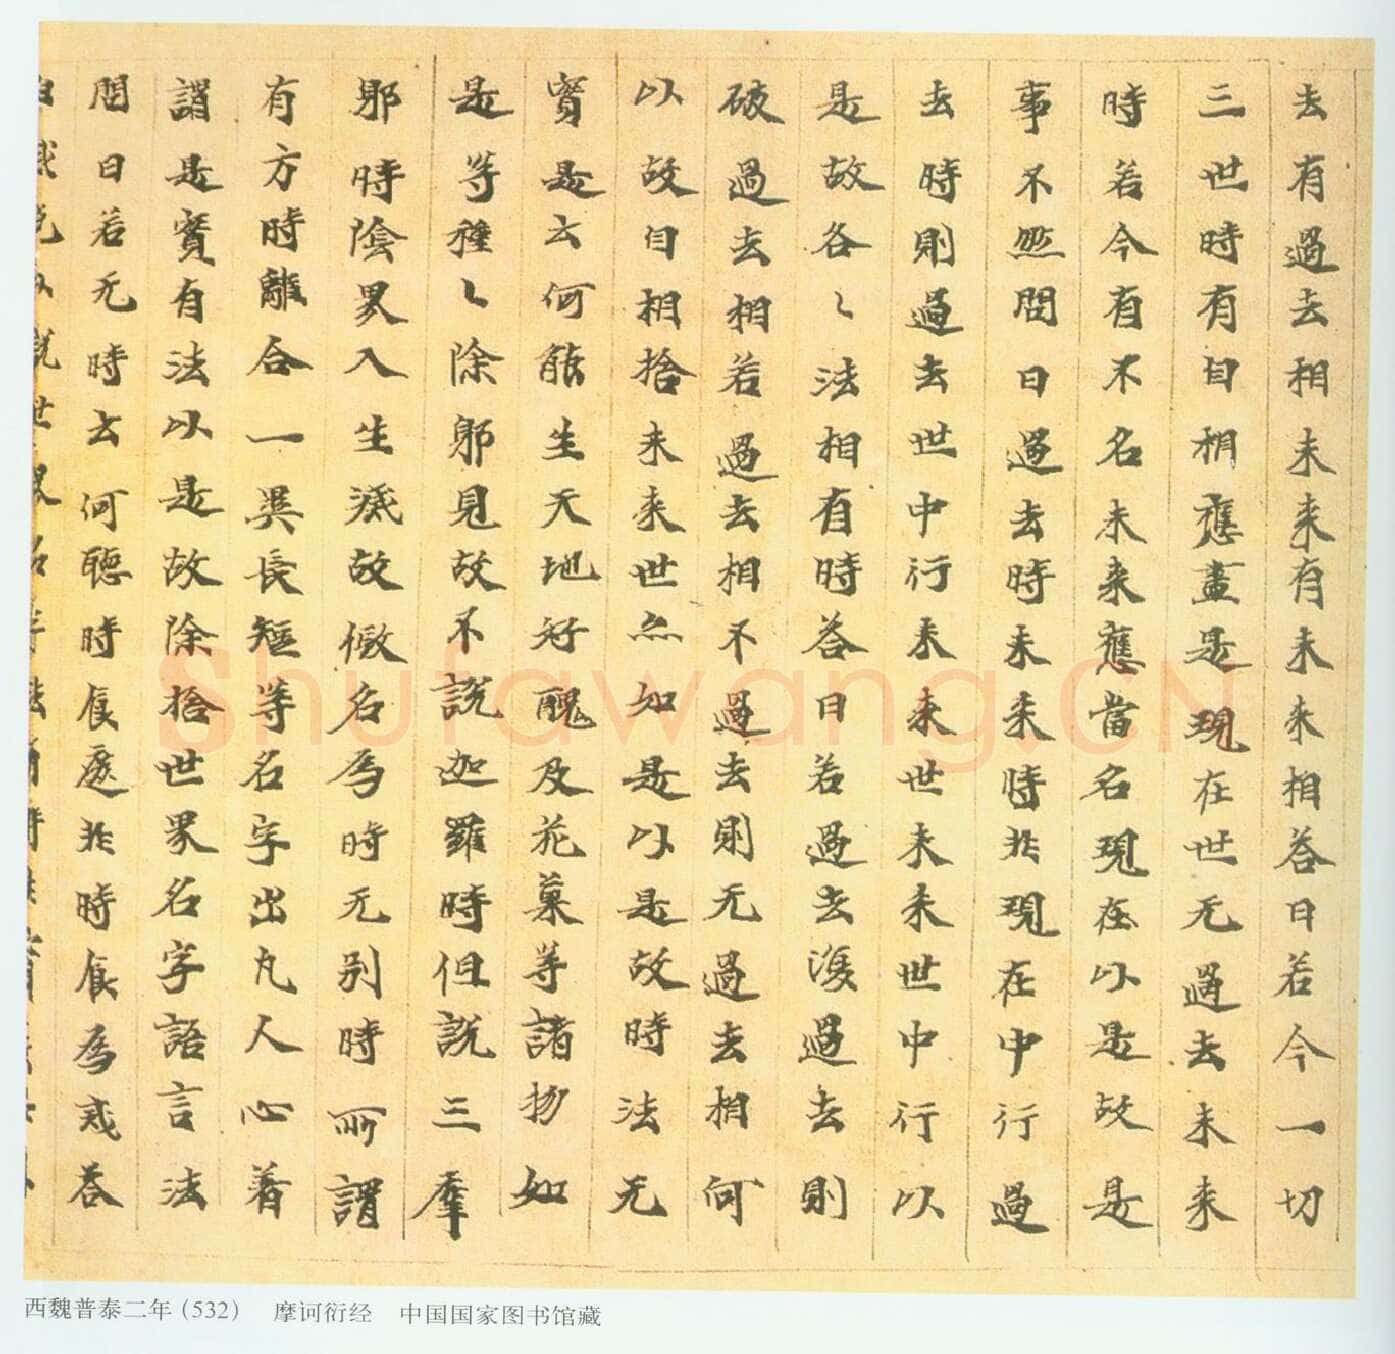 去有過去相未来有未来相荅曰若今一切
三世時有自相應盡是現在世无過去未来
時若今有不名未来應當名現在以是故是
事不然問曰過去時未来時非現在中行過
去時則過去世中行未来世未来世中行以
是故各〻法相有時荅曰若過去復過去則
破過去相若過去相不過去則无過去相何
以故自相捨未来世亦如是以是故時法无
實是云何能生天地好醜及花菓等諸物如
是等種〻除邪見故不說迦羅時但說三摩
耶時陰界入生滅故假名為時无別時所謂
有方時離合一異長短等名字出凡人心著
謂是實有法以是故除捨世界名字語言法
問曰若无時云何聽時食遮非時食為戒荅
曰我先已說世界名字法有時非實
西魏普泰二年(532) 摩诃衍经 中国国家图书馆藏
Shufawang.CN